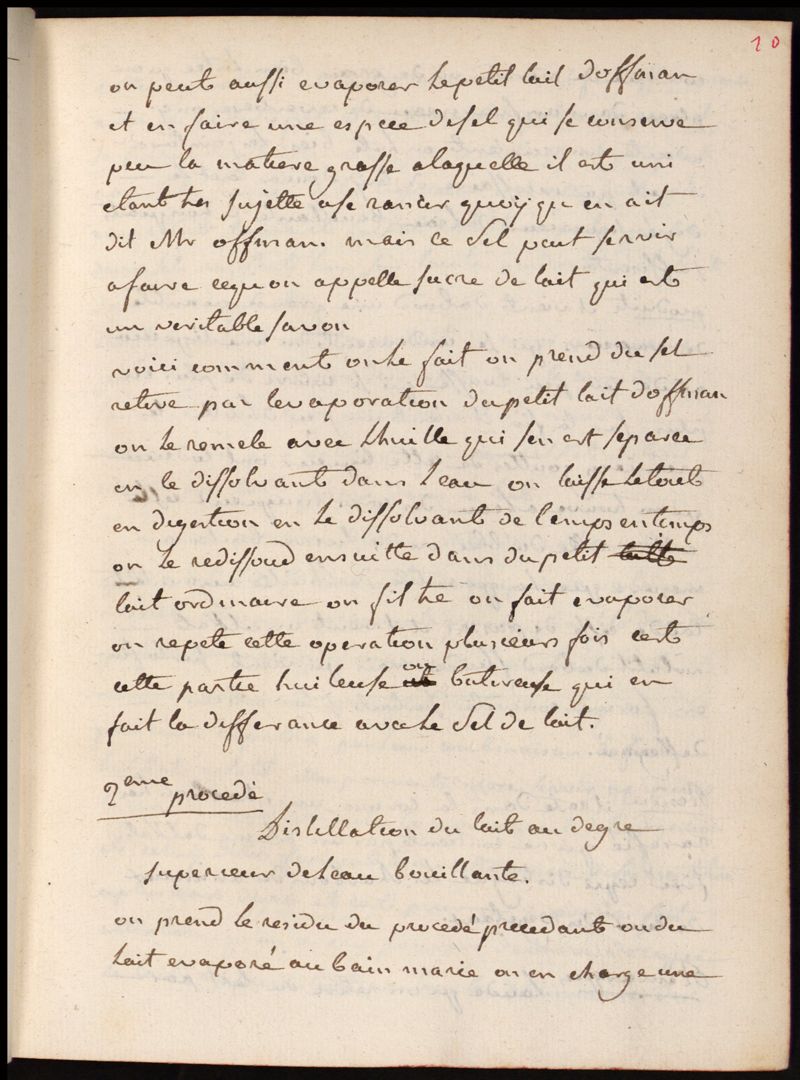 10
on peut aussi evaporer le petit lait doffman
et en faire une espece de sel qui se conserve
peu la matiere grasse a laquelle il est uni
etant tres sujette a se rancir quoyqu en ait
dit Mr offman. mais ce sel peut servir
a faire ce qu on appelle sucre de lait qui est
un veritable savon
voici comment on le fait on prend du sel
retiré par levaporation du petit lait doffman
on le remele avec lhuille qui sen est separée
en le dissolvant dans leau on laisse le tout
en digestion en le dissolvant de temps en temps
on le redissoud ensuitte dans du petit
lait ordinaire on filtre on fait evaporer
on repete cette operation plusieurs fois cest
cette partie huileuse ou butireuse qui en
fait la differance avec le sel de lait.
2eme procedé
Distillation du lait au degre
superieur de leau bouillante.
on prend le residu du procedé precedant ou du
lait evaporé au bain marie on en charge une